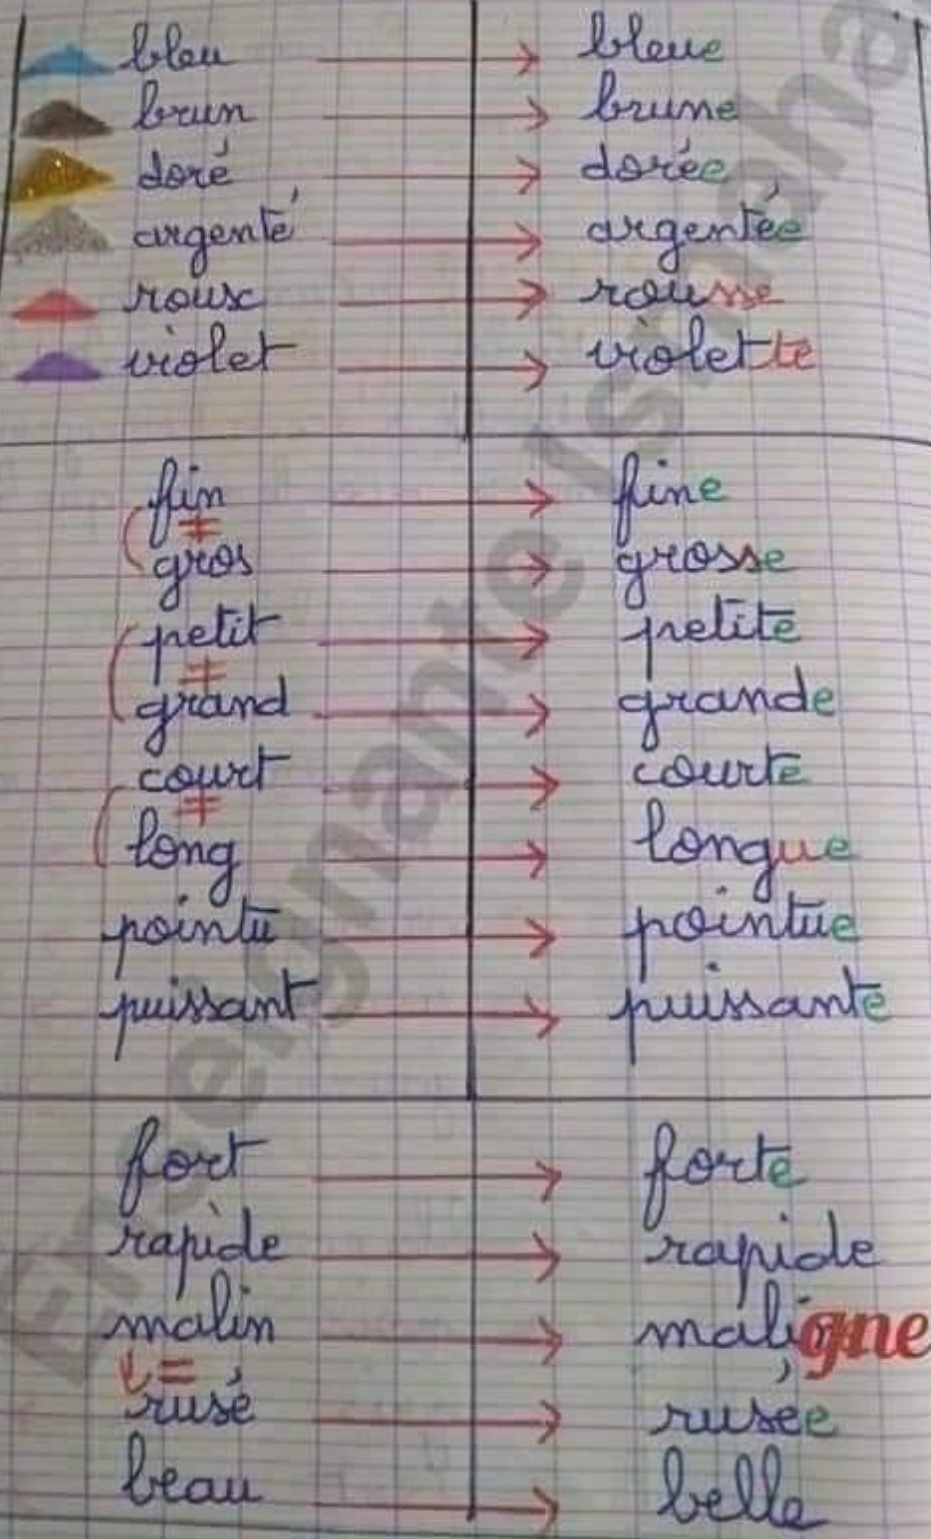 bleu → bleue
brun → brune
doré → dorée
argenté → argentée
roux → rousse
violet → violette
fin → fine
≠
gros → grosse
petit → petite
≠
grand → grande
court → courte
≠
long → longue
pointu → pointue
puissant → puissante
fort → forte
rapide → rapide
malin → maligne
=
rusé → rusée
beau → belle
Enseignante